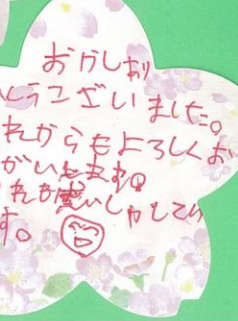 おかしあり
とうございました。
れからもよろしくお
がいします。
す。